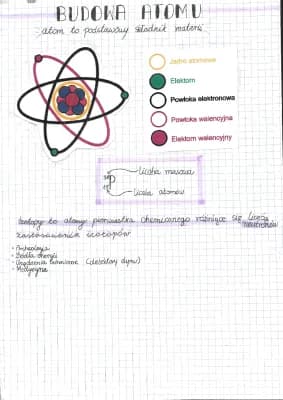 BUDOWA ATOMU
atom to podstawowy składnik materii
Jądro atomowe
Elektorn
Powłoka elektronowa
Powłoka walencyjna
Elektorn walencyjny
liczba masowa
P
liczba atomów
Izotopy to atomy pierwiastka chemicznego różniące się liczbą neutronów
zastosowania izotopów
• Archeologia
• źródła energii
• Urządzenia (detektory dymu)
• Medycyna